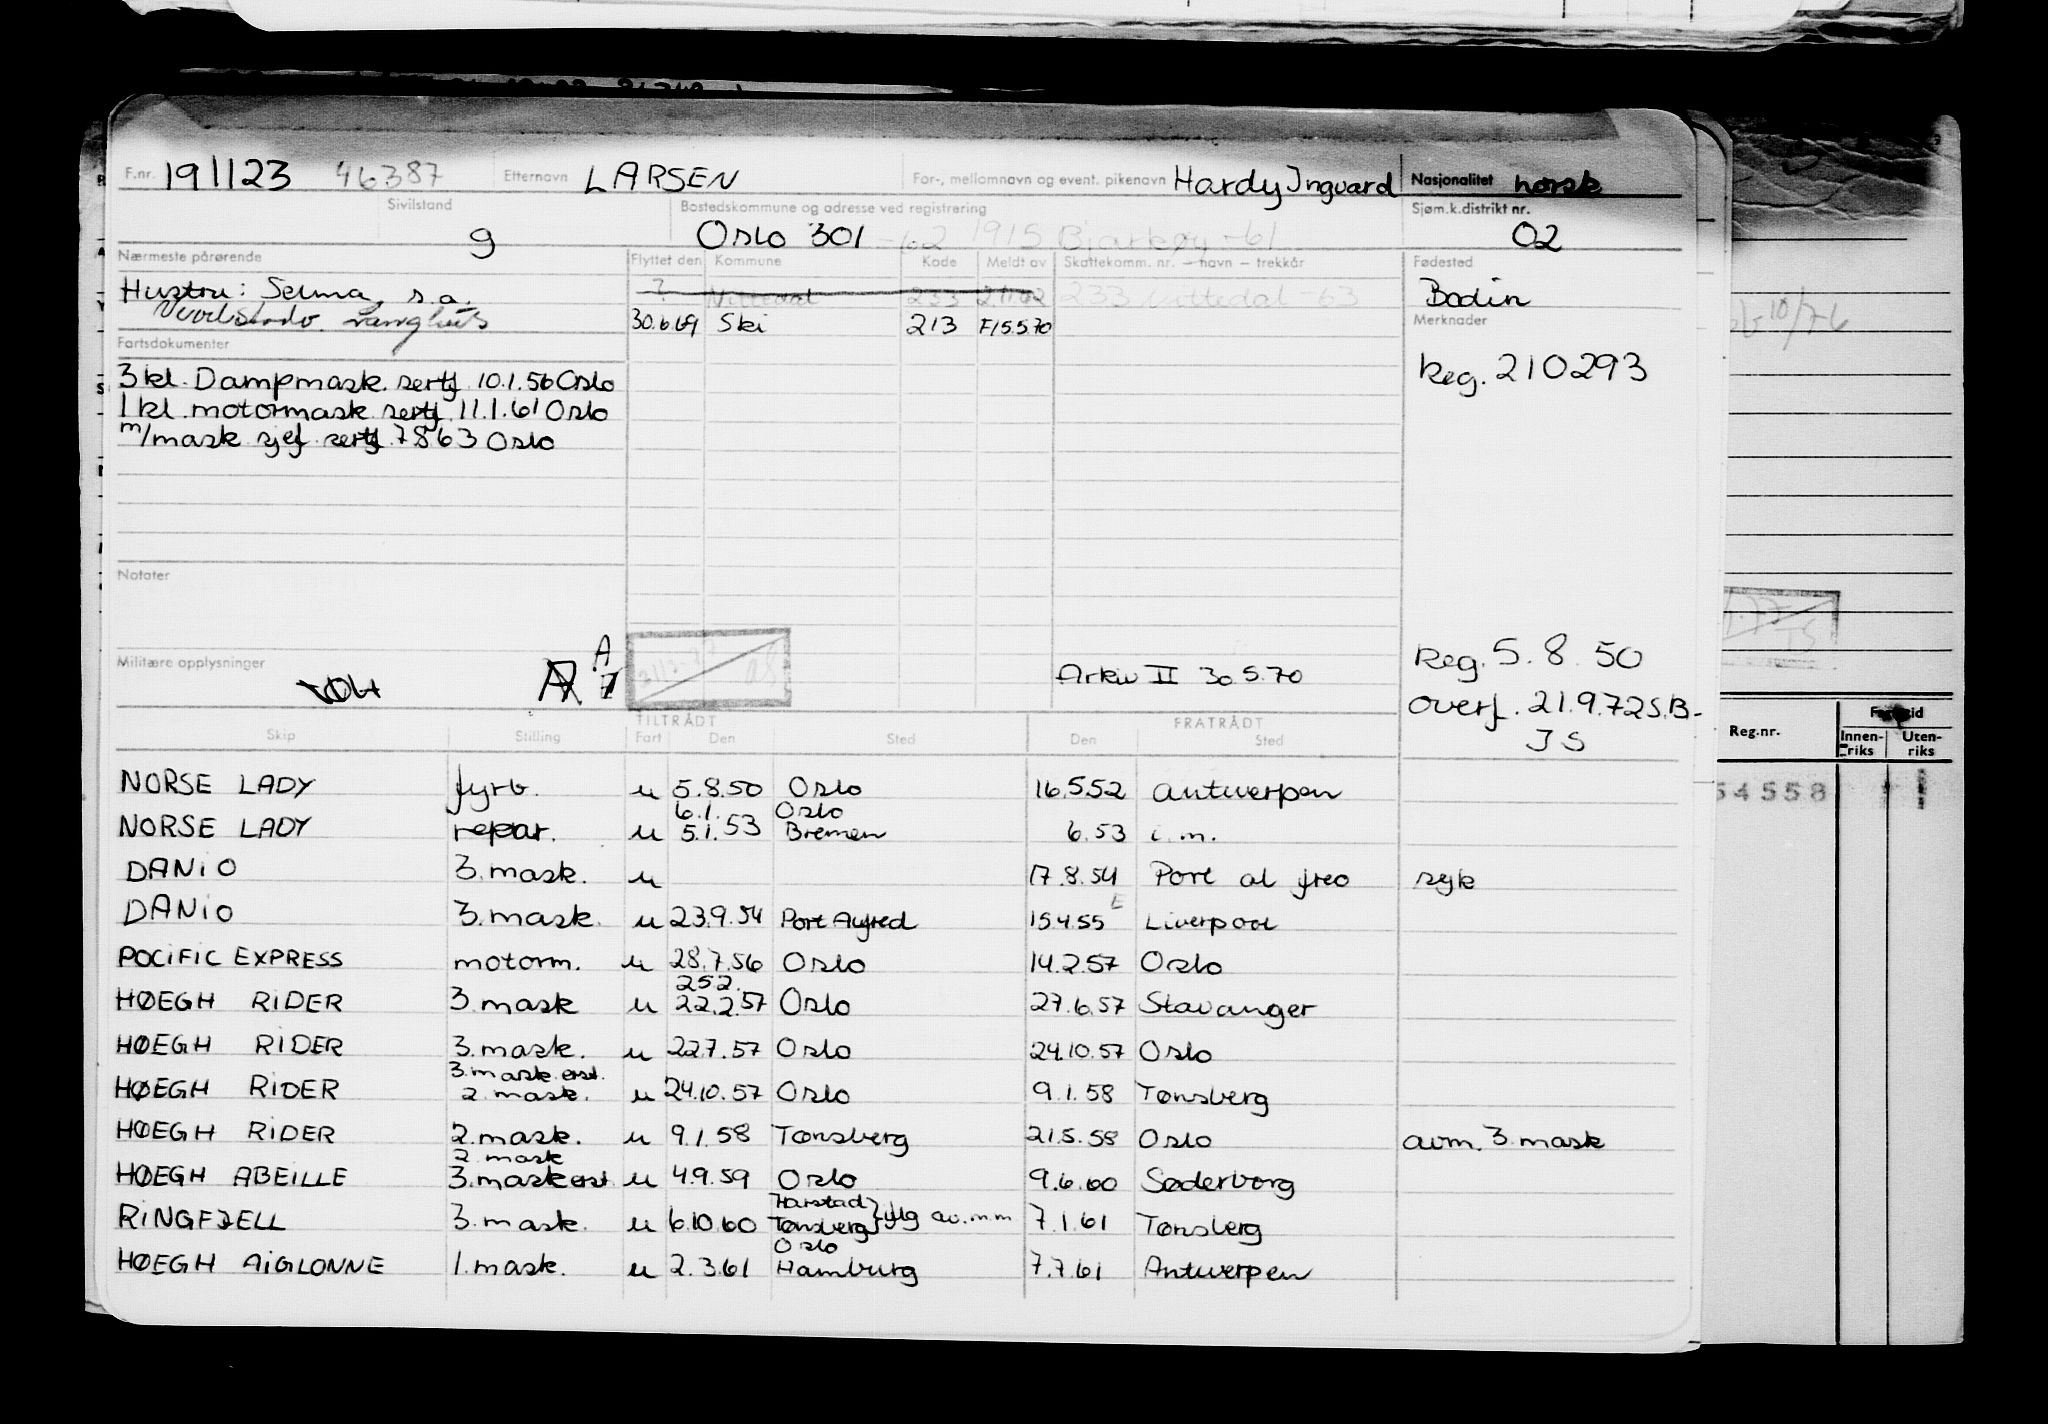 F.nr. 191123 46387 Etternavn LARSEN For-, mellomnavn og event. pikenavn Hardy Ingvard Nasjonalitet norsk
Sivilstand g Bostedskommune og adresse ved registrering Oslo 301 -62 1915 Bjarkøy -61 Sjøm.k.distrikt nr. 02
Nærmeste pårørende Flyttet den Kommune Kode Meldt av Skattekomm. nr. – navn – trekkår Fødested
Hustru: Selma, s.a. ? Nittedal 233 2/1162 233 Nittedal -63 Bodin
30.6.69 Ski 213 F/5.5.70 Merknader
Fartsdokumenter
3 kl. Dampmask. sertf 10.1.56 Oslo Reg. 210293
1 kl. motormask sertf 11.1.61 Oslo
m/mask sjef sertf 7863 Oslo
Notater
A
Militære opplysninger Arkiv II 30.5.70 Reg. 5.8.50
overf. 21.9.72 S.B-
JS
TILTRÅDT FRATRÅDT
Skip Stilling Fart Den Sted Den Sted
NORSE LADY fyrb. u 5.8.50 Oslo 16.5.52 Antwerpen
6.1. Oslo
NORSE LADY repar. u 5.1.53 Bremen 6.53 i.m.
DANIO 3.mask. u 17.8.54 Port al freo syk
DANIO 3.mask. u 23.9.54 Port Alfred 15.4.55 E Liverpool
POCIFIC EXPRESS motorm. u 28.7.56 Oslo 14.2.57 Oslo
25.2.
HØEGH RIDER 3.mask u 22.2.57 Oslo 27.6.57 Stavanger
HØEGH RIDER 3.mask. u 22.7.57 Oslo 24.10.57 Oslo
3.mask.erst.
HØEGH RIDER 2.mask. u 24.10.57 Oslo 9.1.58 Tønsberg
HØEGH RIDER 2.mask. u 9.1.58 Tønsberg 21.5.58 Oslo avm. 3.mask
2.mask
HØEGH ABEILLE 3.mask erst u 4.9.59 Oslo 9.6.60 Søderborg
Harstad
RINGFJELL 3.mask. u 6.10.60 Tønsberg iflg av.m.m 7.1.61 Tønsberg
Oslo
HØEGH AIGLONNE 1.mask. u 2.3.61 Hamburg 7.7.61 Antwerpen
10/7-6
Reg.nr. Innen-riks Uten-riks
54558